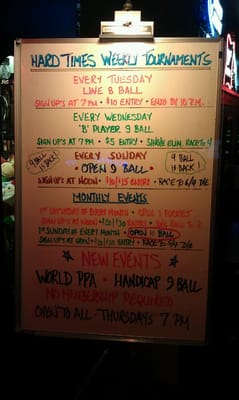 HARD TIMES WEEKLY TOURNAMENTS
EVERY TUESDAY
LINE 8 BALL
SIGN UP'S AT 7 PM • $10 ENTRY • ENDS BY 10 P.M.
EVERY WEDNESDAY
'B' PLAYER 9 BALL
SIGN UP'S AT 7 PM • $5 ENTRY • SINGLE ELIM. RACE TO 4
EVERY SUNDAY
OPEN 9 BALL •
9 BALL IS BACK!
9 BALL
IS BACK!
SIGN UP'S AT NOON • $10/$15 ENTRY •
MONTHLY EVENTS
1ST SATURDAY OF EVERY MONTH • OPEN 1 POCKET
SIGN UP'S AT NOON • $20/$30 ENTRY •
1ST SUNDAY OF EVERY MONTH • OPEN 10 BALL
SIGN UP'S AT NOON • $20/$30 ENTRY •
NEW EVENTS
WORLD PPA • HANDICAP 9 BALL
NO MEMBERSHIP REQUIRED
OPEN TO ALL • THURSDAYS 7 PM